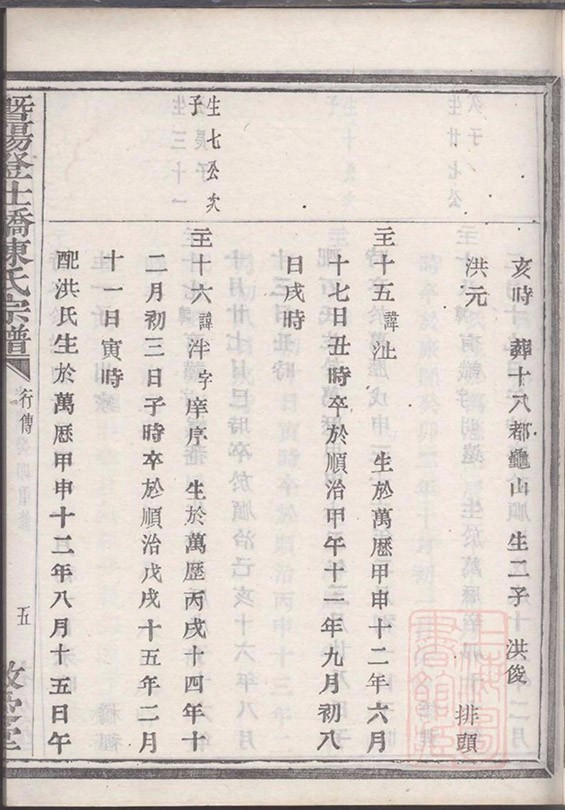 亥時　葬十八都龜山　生二子　洪俊
洪元　排頭
王十五諱沚　生於萬歷甲申十二年六月
十七日丑時卒於順治甲午十一年九月初八
日戌時
生七公次
子
王十六諱泮字庠序　生於萬歷丙戌十四年十
二月初三日子時卒於順治戊戌十五年二月
十一日寅時
配洪氏生於萬歷甲申十二年八月十五日午
暨陽登仕橋陳氏宗譜
行傳
五